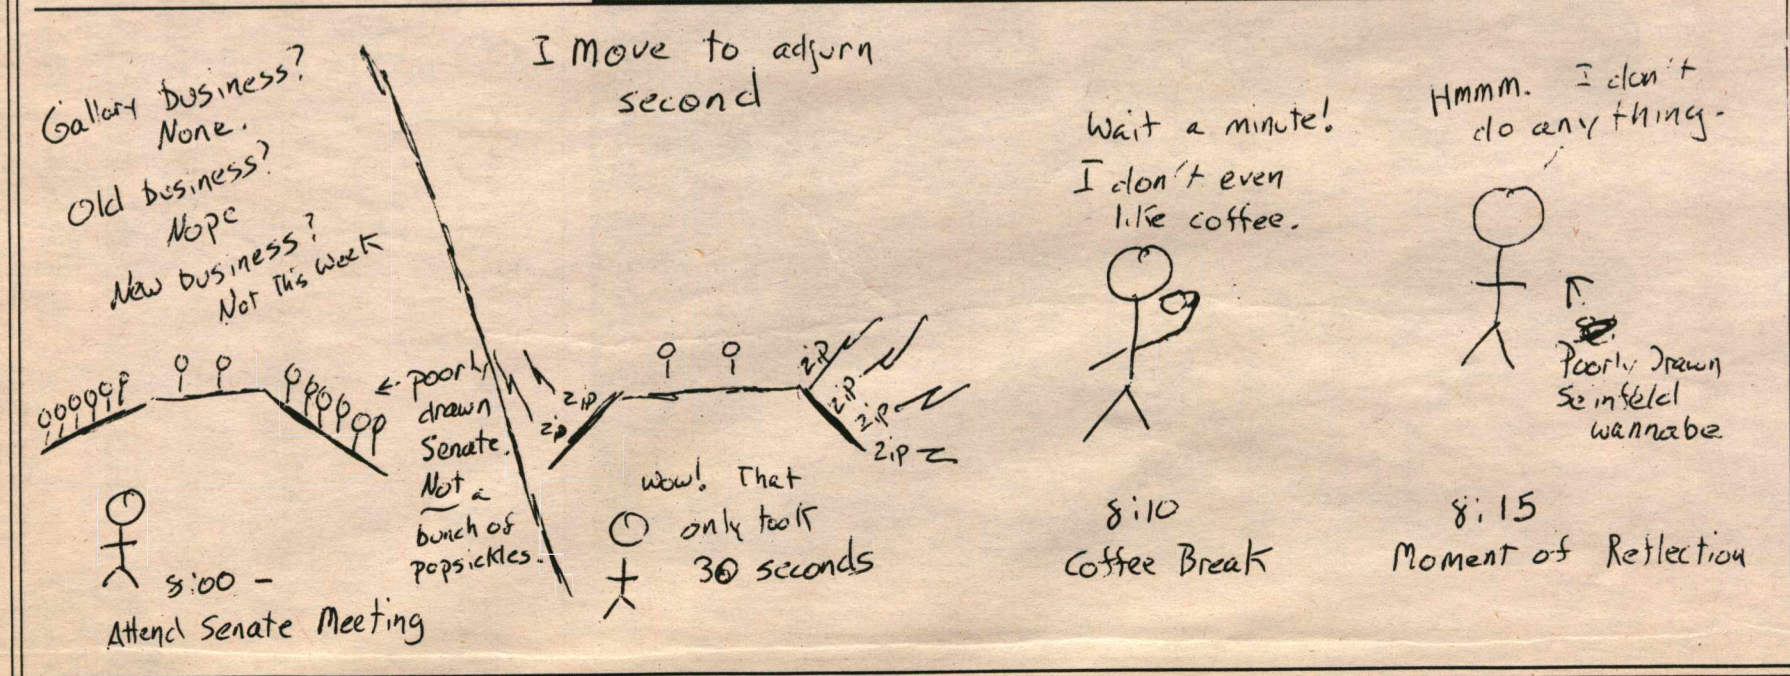 Gallary business?
None.
Old business?
Nope
New business?
Not This Week
← poorly
drawn
Senate.
Not a
bunch of
popsickles.
8:00 –
Attend Senate Meeting
I move to adjurn
second
zip
zip
zip
zip
zip
zip
Wow! That
only took
30 seconds
Wait a minute!
I don't even
like coffee.
8:10
Coffee Break
Hmmm. I don't
do anything.
Poorly Drawn
Seinfeld
wannabe
8:15
Moment of Reflection